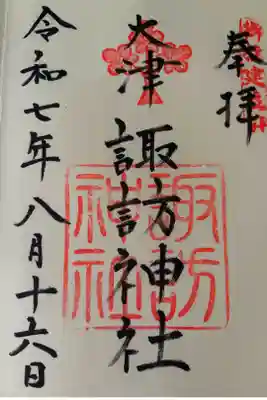 奉拝
大津
諏訪神社
令和七年八月十六日
諏訪
神社